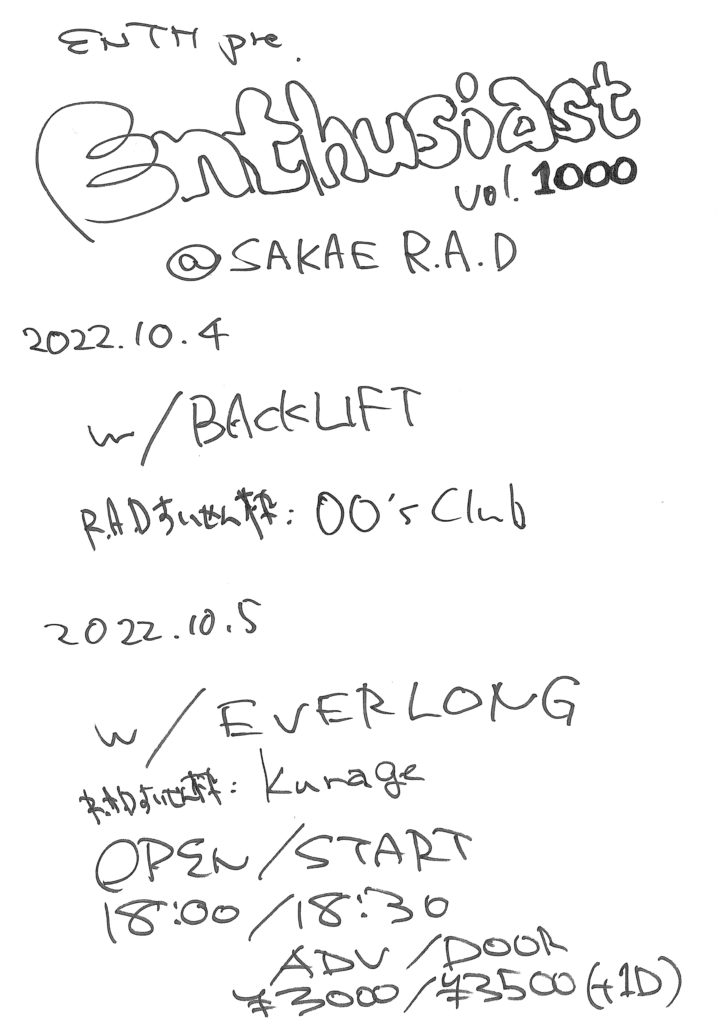 ENTH pre.
Enthusiast
vol. 1000
@SAKAE R.A.D
2022.10.4
w/BACKLIFT
R.A.Dすいせん枠: 00's Club
2022.10.5
w/EVERLONG
R.A.Dすいせん枠: Kurage
OPEN/START
18:00/18:30
ADV/DOOR
¥3000/¥3500(+1D)